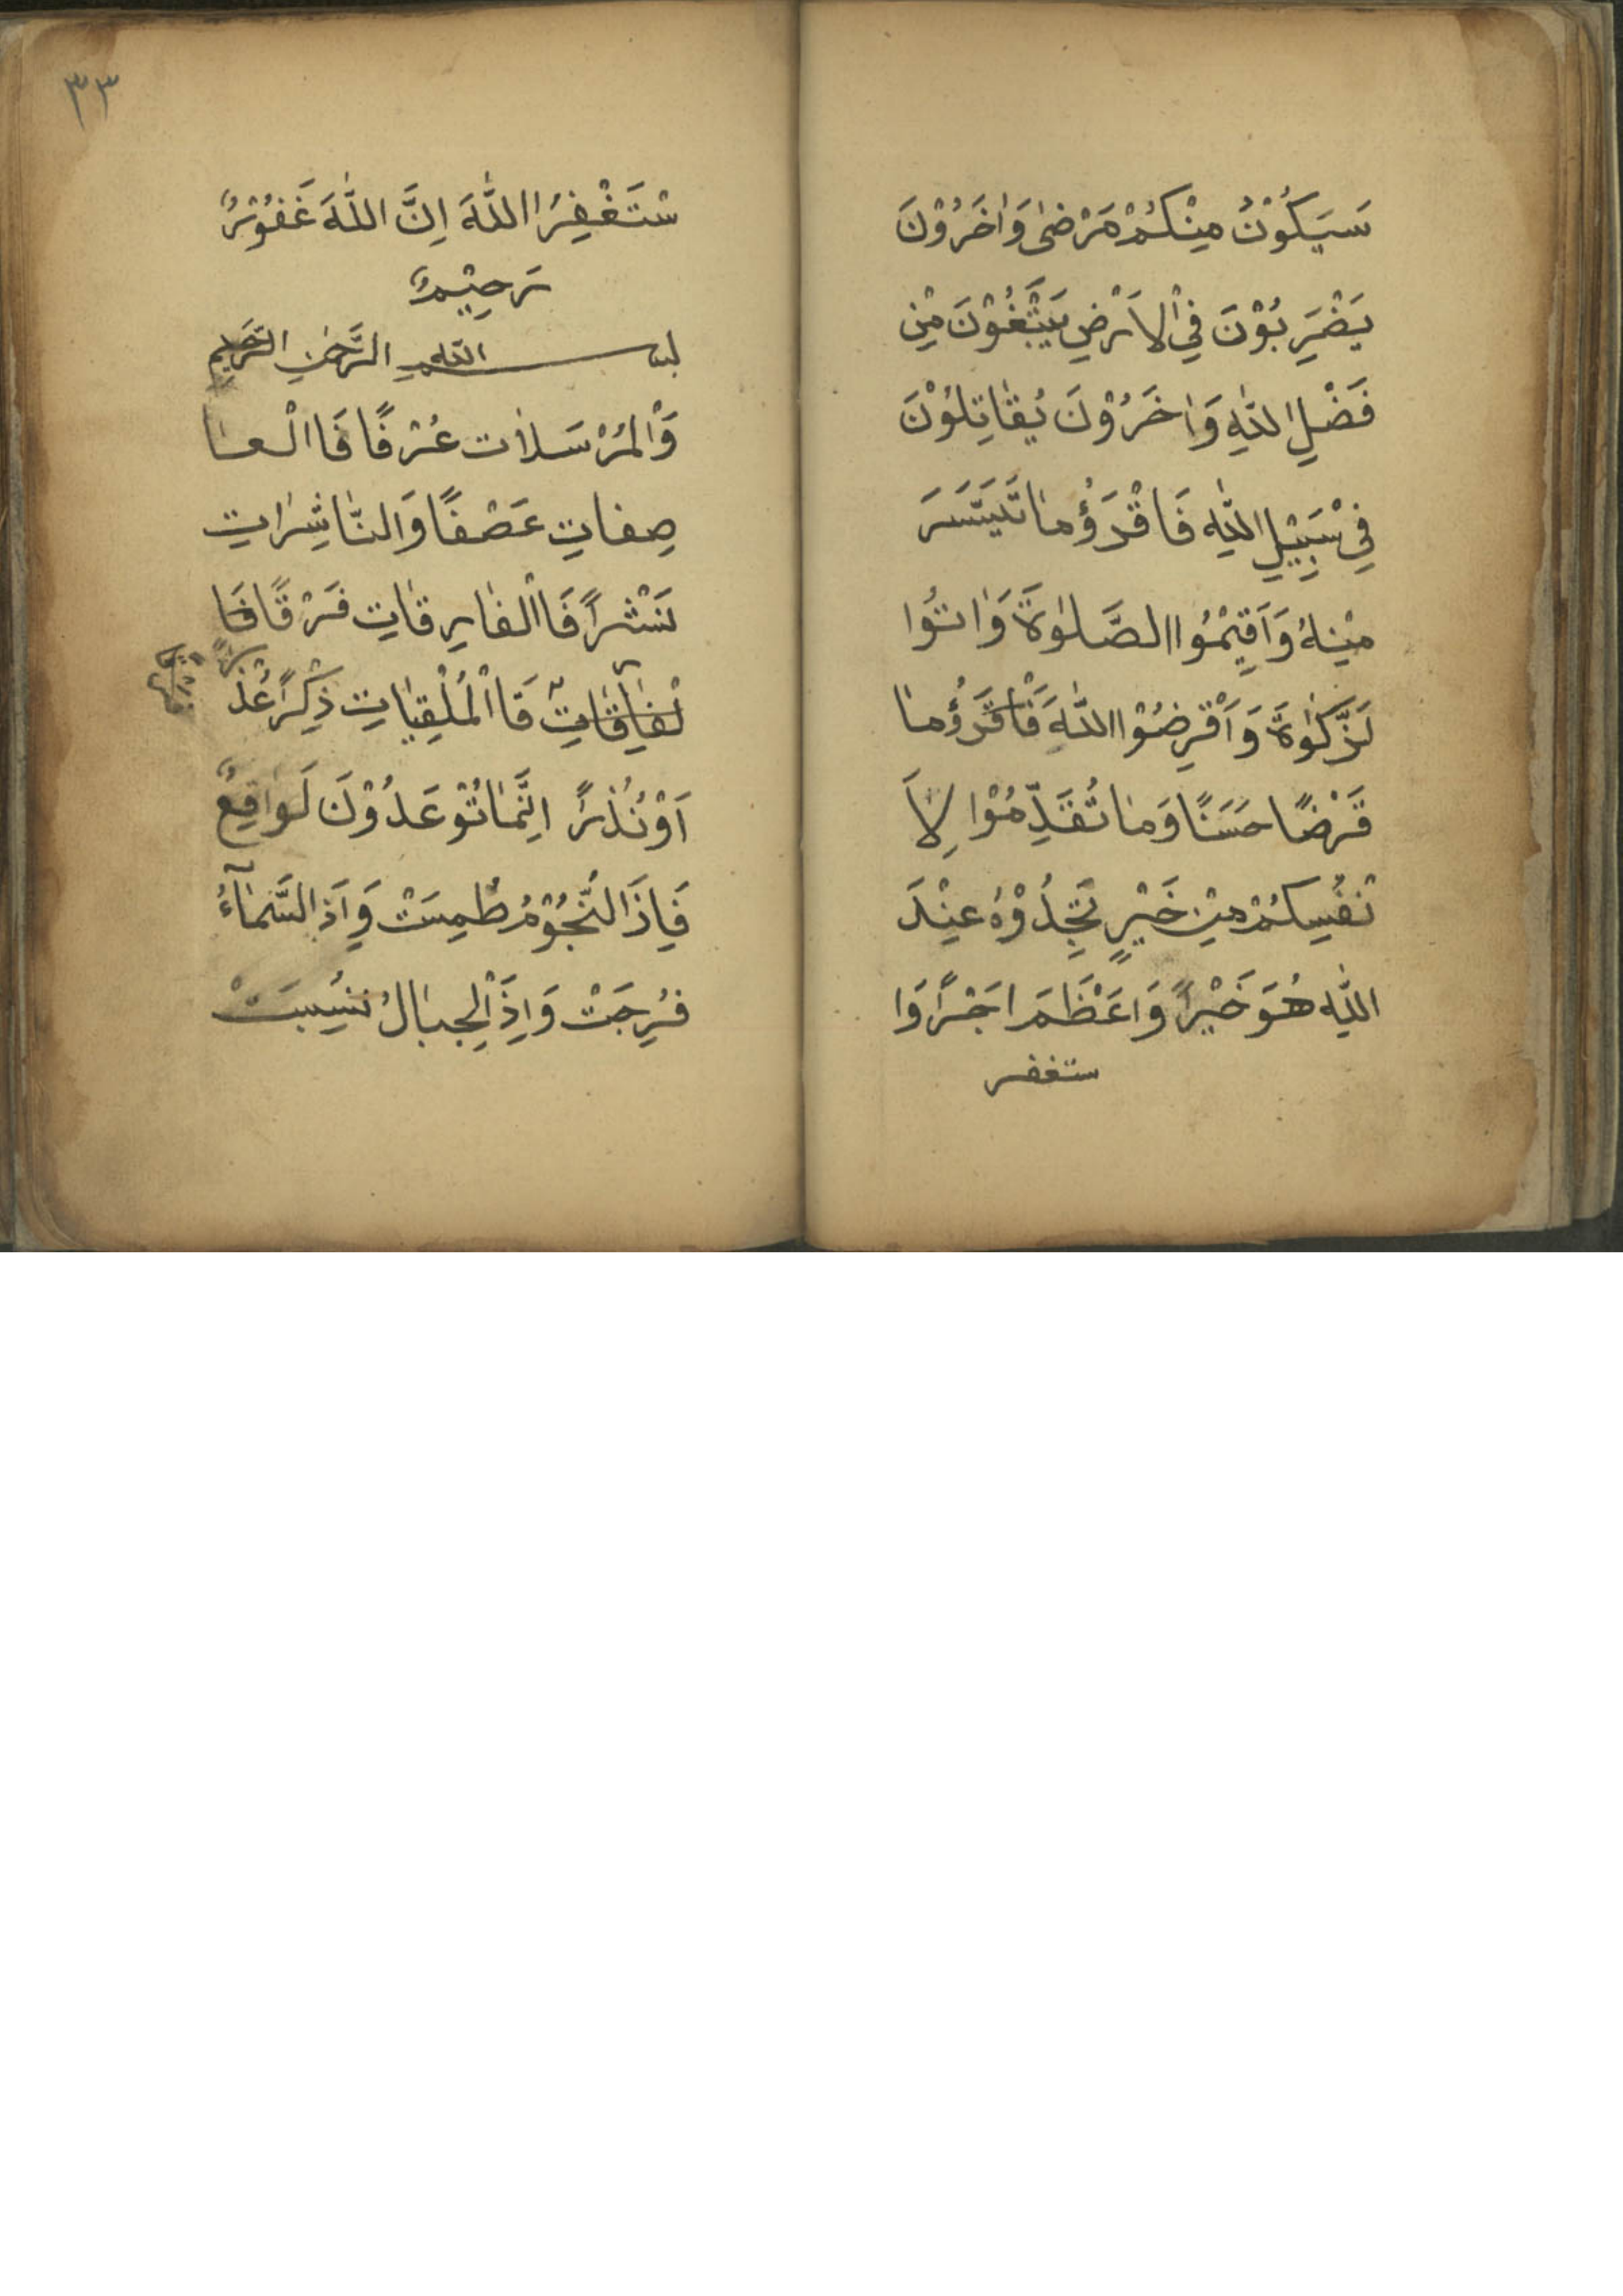 سَيَكُوْنُ مِنْكُمْ مَرْضٰى وَاٰخَرُوْنَ
يَضْرِبُوْنَ فِيْ الْاَرْضِ يَبْتَغُوْنَ مِنْ
فَضْلِ اللّٰهِ وَاٰخَرُوْنَ يُقٰاتِلُوْنَ
فِيْ سَبِيْلِ اللّٰهِ فَاقْرَؤُ مٰا تَيَسَّرَ
مِنْهُ وَاَقِيْمُوا الصَّلٰوةَ وَاٰتُوا
لزَّكٰوةَ وَاَقْرِضُوْا اللّٰهَ فَاقْرَؤُ مٰا
قَرْضًا حَسَنًا وَمٰا تُقَدِّمُوْا لِاَ
نْفُسِكُمْ مِنْ خَيْرٍ تَجِدُوْهُ عِنْدَ
اللّٰهِ هُوَ خَيْرًا وَاَعْظَمَ اَجْرًا وَا
ستغفر
٣٣
سْتَغْفِرُ اللّٰهَ اِنَّ اللّٰهَ غَفُوْرٌ
رَحِيْمٌ
بسم اللّٰهِ الرَّحْمٰنِ الرَّحِيمِ
وَالْمُرْسَلاٰت عُرْفًا فَاالْعٰا
صِفاتِ عَصْفًا وَالنّٰاشِرٰاتِ
نَشْرًا فَاالْفٰارِقٰاتِ فَرْقًا فَا
لْفٰارِقٰاتِ فَاالْمُلْقِيٰاتِ ذِكْرًا عُذْ
رًا
اَوْ نُذْرًا اِنَّمٰا تُوْعَدُوْنَ لَوٰاقِعٌ
فَاِذَا النُّجُوْمُ طُمِسَتْ وَاِذَ السَّمٰآءُ
فُرِجَتْ وَاِذَ الْجِبٰالُ نُسِبَتْ